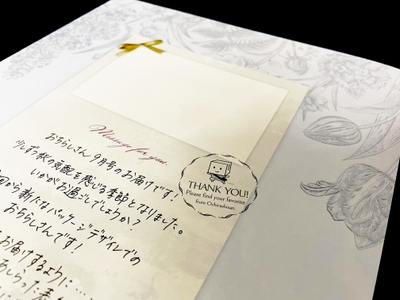 for you
おちらしさん 9月号のお届けです!
少しずつ秋の気配を感じる季節となりました。
いかがお過ごしでしょうか?
から新たなパッケージデザインでの
おちらしさんです!
お届けするように・・・
THANK YOU!
Please find your favorite
from Ochirashisan.